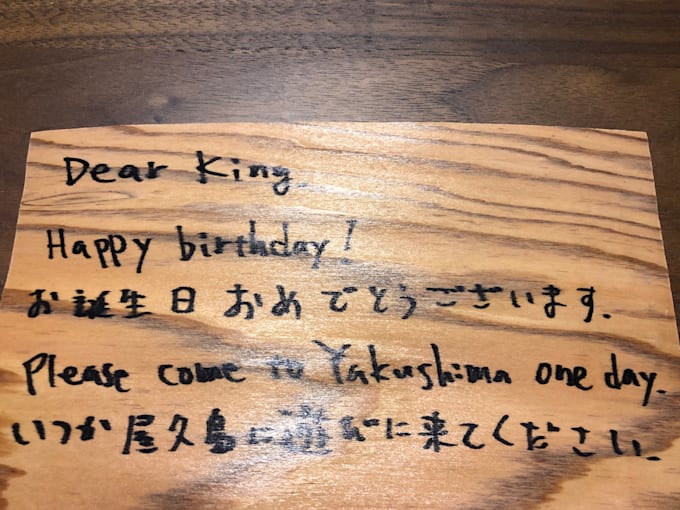 Dear King.
Happy birthday!
お誕生日おめでとうございます.
Please come to Yakushima one day.
いつか屋久島に遊びに来てください.